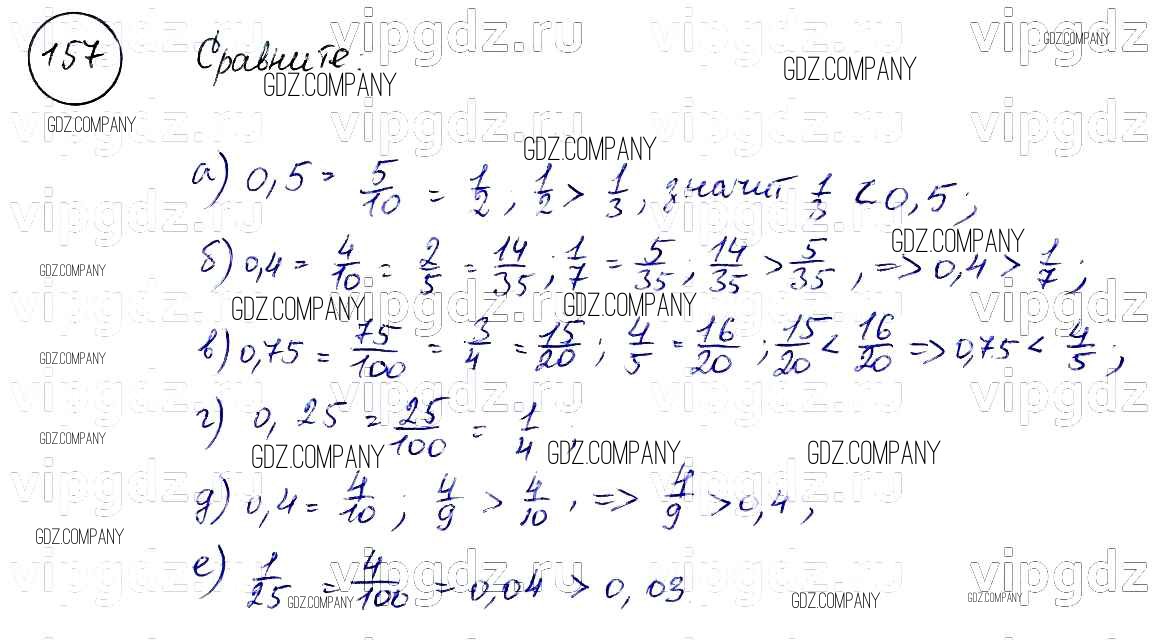 157 Сравните:
а) 0,5 = 5/10 = 1/2; 1/2 > 1/3, значит 1/3 < 0,5;
б) 0,4 = 4/10 = 2/5 = 14/35; 1/7 = 5/35; 14/35 > 5/35, => 0,4 > 1/7;
в) 0,75 = 75/100 = 3/4 = 15/20; 4/5 = 16/20; 15/20 < 16/20 => 0,75 < 4/5;
г) 0,25 = 25/100 = 1/4;
д) 0,4 = 4/10; 4/9 > 4/10, => 4/9 > 0,4;
е) 1/25 = 4/100 = 0,04 > 0,03
GDZ.COMPANY
vipgdz.ru